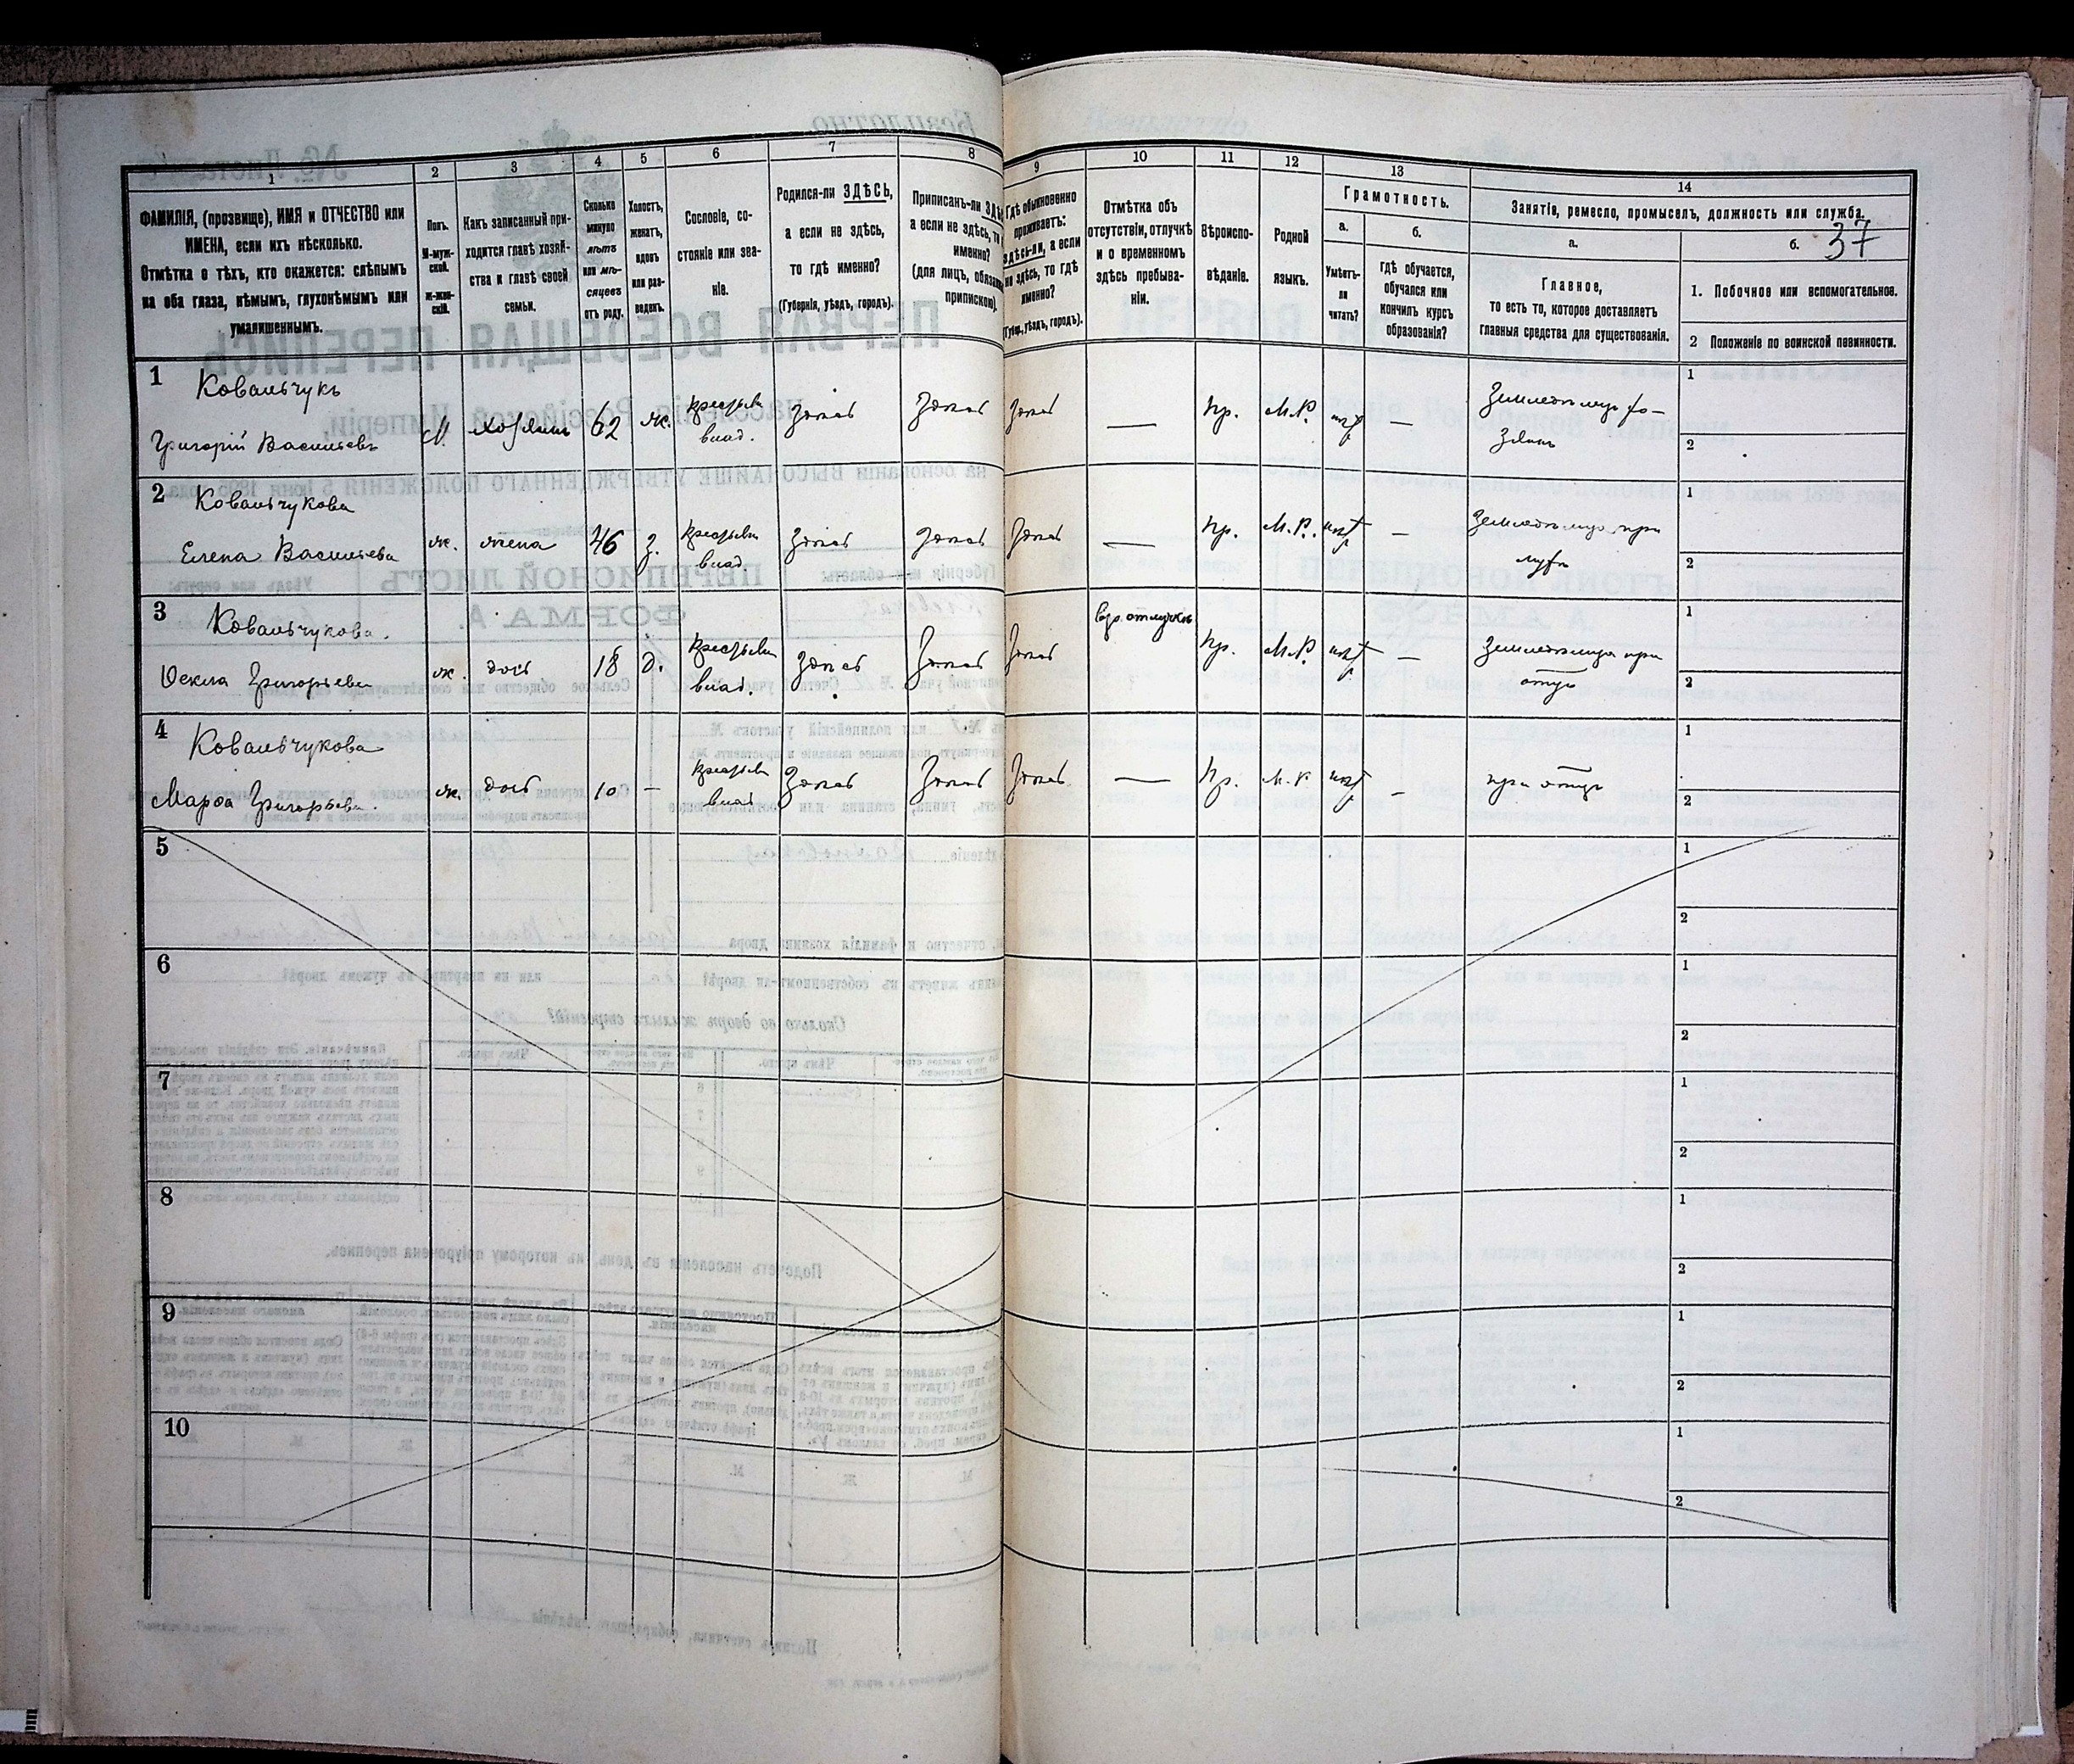 37
1 2 3 4 5 6 7 8 9 10 11 12 13 14
ФАМИЛІЯ, (прозвище), ИМЯ и ОТЧЕСТВО или
ИМЕНА, если ихъ нѣсколько.
Отмѣтка о тѣхъ, кто окажется: слѣпымъ
на оба глаза, нѣмымъ, глухонѣмымъ или
умалишеннымъ.
Полъ.
М-муж-
ской.
ж-жен-
скій.
Какъ записанный при-
ходится главѣ хозяй-
ства и главѣ своей
семьи.
Сколько
минуло
лѣтъ
или мѣ-
сяцевъ
отъ роду.
Холостъ,
женатъ,
вдовъ
или раз-
веденъ.
Сословіе, со-
стояніе или зва-
ніе.
Родился-ли ЗДѢСЬ,
а если не здѣсь,
то гдѣ именно?
(Губернія, уѣздъ, городъ).
Приписанъ-ли
а если не здѣсь,
именно?
(для лицъ,
припискою).
Гдѣ обыкновенно
проживаетъ:
здѣсь-ли, а если
не здѣсь, то гдѣ
именно?
(Губ., уѣздъ, городъ).
Отмѣтка объ
отсутствіи, отлучкѣ
и о временномъ
здѣсь пребыва-
ніи.
Вѣроиспо-
вѣданіе.
Родной
языкъ.
Грамотность.
а.
Умѣетъ-
ли
читать?
б.
гдѣ обучается,
обучался или
кончилъ курсъ
образованія?
Занятіе, ремесло, промыселъ, должность или служба.
а.
Главное,
то есть то, которое доставляетъ
главныя средства для существованія.
б.
1. Побочное или вспомогательное.
2 Положеніе по воинской повинности.
1 Ковальчукъ
Григорій Васильевъ М. хозяинъ 62 ж. крестьян влад. Здѣсь Здѣсь Здѣсь — Пр. М.Р. нѣт — Земледѣлец хо-
зяинъ 1 2
2 Ковальчукова
Елена Васильева ж. жена 46 з. крестьян влад. Здѣсь Здѣсь Здѣсь — Пр. М.Р. нѣт — Земледѣлец при
мужѣ 1 2
3 Ковальчукова.
Ѳекла Григорьева ж. дочь 18 д. крестьян влад. Здѣсь Здѣсь Здѣсь вр. отлучкѣ Пр. М.Р. нѣт — Земледѣлец при
отцѣ 1 2
4 Ковальчукова
Марѳа Григорьева. ж. дочь 10 — крестьян влад Здѣсь Здѣсь Здѣсь — Пр. М.Р нѣт — при отцѣ 1 2
5 1 2
6 1 2
7 1 2
8 1 2
9 1 2
10 1 2